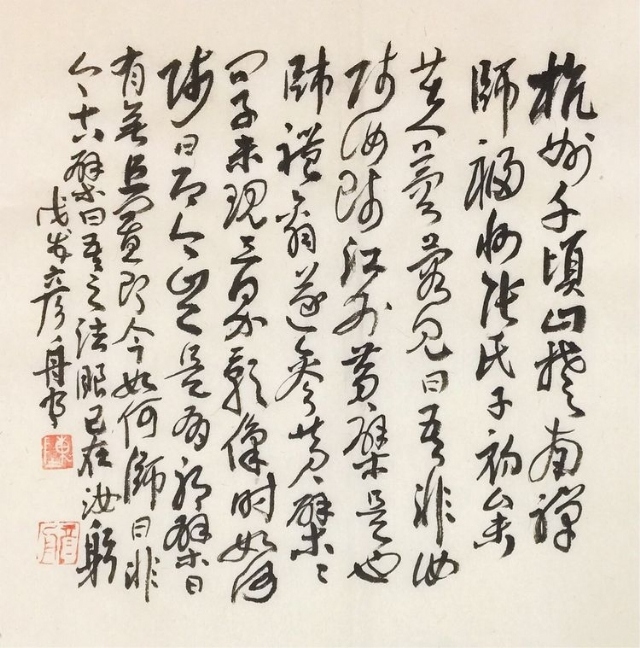 杭州千頃山楚南禪
師福州張氏子初參
芙蓉蓉見曰吾非汝
師汝師江外黃檗是也
師禮辭遂參黃檗〻
問子未現三界影像時如何
師曰即今豈是有邪檗曰
有無且置即今如何師曰非
今古檗曰吾之法眼已在汝躬
戊戌彥舟書